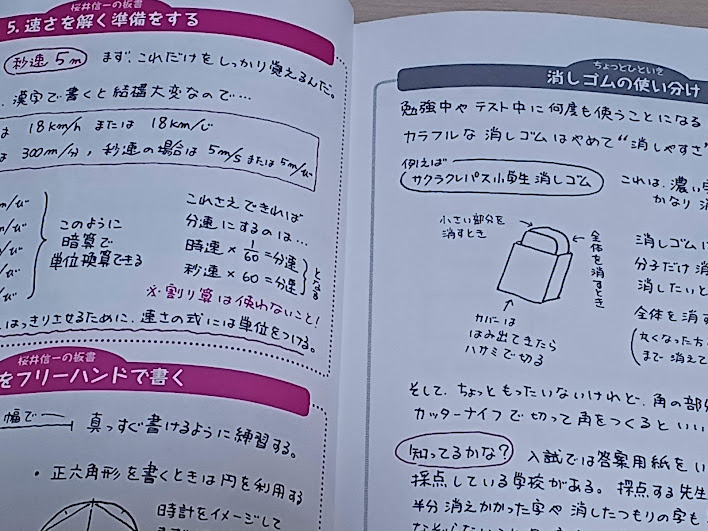 桜井信一の板書
5. 速さを解く準備をする
秒速 5m まず、これだけをしっかり覚えるんだ。
漢字で書くと結構大変なので…
は 18km/h または 18km/じ
は 300m/分, 秒速の場合は 5m/s または 5m/び
このように
暗算で
単位換算できる
これさえできれば
分速にするのは…
時速 × 1/60 = 分速
秒速 × 60 = 分速
となる
※割り算は使わないこと!
はっきりさせるために、速さの式には単位をつける。
桜井信一の板書
をフリーハンドで書く
幅で
真っすぐ書けるように練習する。
・正六角形を書くときは円を利用する
時計をイメージして
ちょっとひといき
消しゴムの使い分け
勉強中やテスト中に何度も使うことになる
カラフルな消しゴムはやめて“消しやすさ”
例えば
サクラクレパス小学生消しゴム
これは、濃い
かなり
小さい部分を
消すとき
全体を消すとき
カバーは
はみ出てきたら
ハサミで切る
消しゴムに
分子だけ
消したいと
全体を消す
丸くなった方
まで消えて
そして、ちょっともったいないけれど、角の部分
カッターナイフで切って角をつくるといい
知ってるかな?
入試では答案用紙を
採点している学校がある。採点する先生
半分消えかかった字や消したつもりの字も